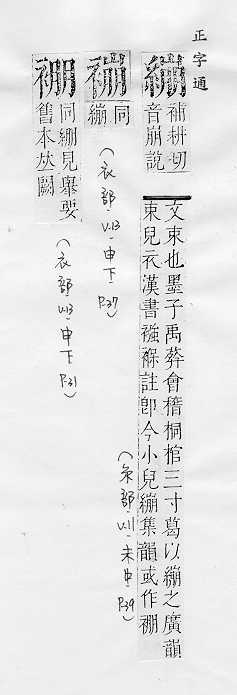 正字通
繃
補耕切
音崩說
文束也墨子禹葬會稽桐棺三寸葛以繃之廣韻
束兒衣漢書襁褓註即今小兒繃集韻或作褓
(糸部·VII·未中·P.39)
同
繃
(衣部·V.13·申下·P.37)
同繃見舉要
舊本𠀤闕
(衣部·V.13·申下·P.31)